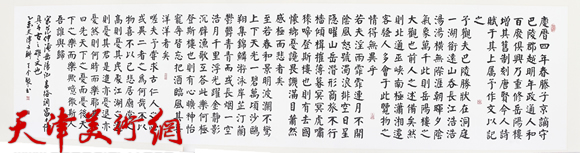 慶曆四年春滕子京謫守
巴陵郡越明年政通人和
百廢具興乃重修岳陽樓
增其舊制刻唐賢今人詩
賦于其上屬予作文以記之
予觀夫巴陵勝狀在洞庭
一湖銜遠山吞長江浩浩
湯湯橫無際涯朝暉夕陰
氣象萬千此則岳陽樓之
大觀也前人之述備矣然
則北通巫峽南極瀟湘遷
客騷人多會于此覽物之
情得無異乎
若夫淫雨霏霏連月不開
陰風怒號濁浪排空日星
隱曜山岳潛形商旅不行
檣傾楫摧薄暮冥冥虎嘯
猿啼登斯樓也則有去國
懷鄉憂讒畏譏滿目蕭然
感極而悲者矣
至若春和景明波瀾不驚
上下天光一碧萬頃沙鷗
翔集錦鱗游泳岸芷汀蘭
郁郁青青而或長烟一空
皓月千里浮光躍金靜影
沉璧漁歌互答此樂何極
登斯樓也則有心曠神怡
寵辱皆忘把酒臨風其喜
洋洋者矣
嗟夫予嘗求古仁人之心
或異二者之爲何哉不以
物喜不以己悲居廟堂之
高則憂其民處江湖之遠
則憂其君是進亦憂退亦
憂然則何時而樂耶其必
曰先天下之憂而憂後天
下之樂而樂乎噫微斯人
吾誰與歸
天津美術網